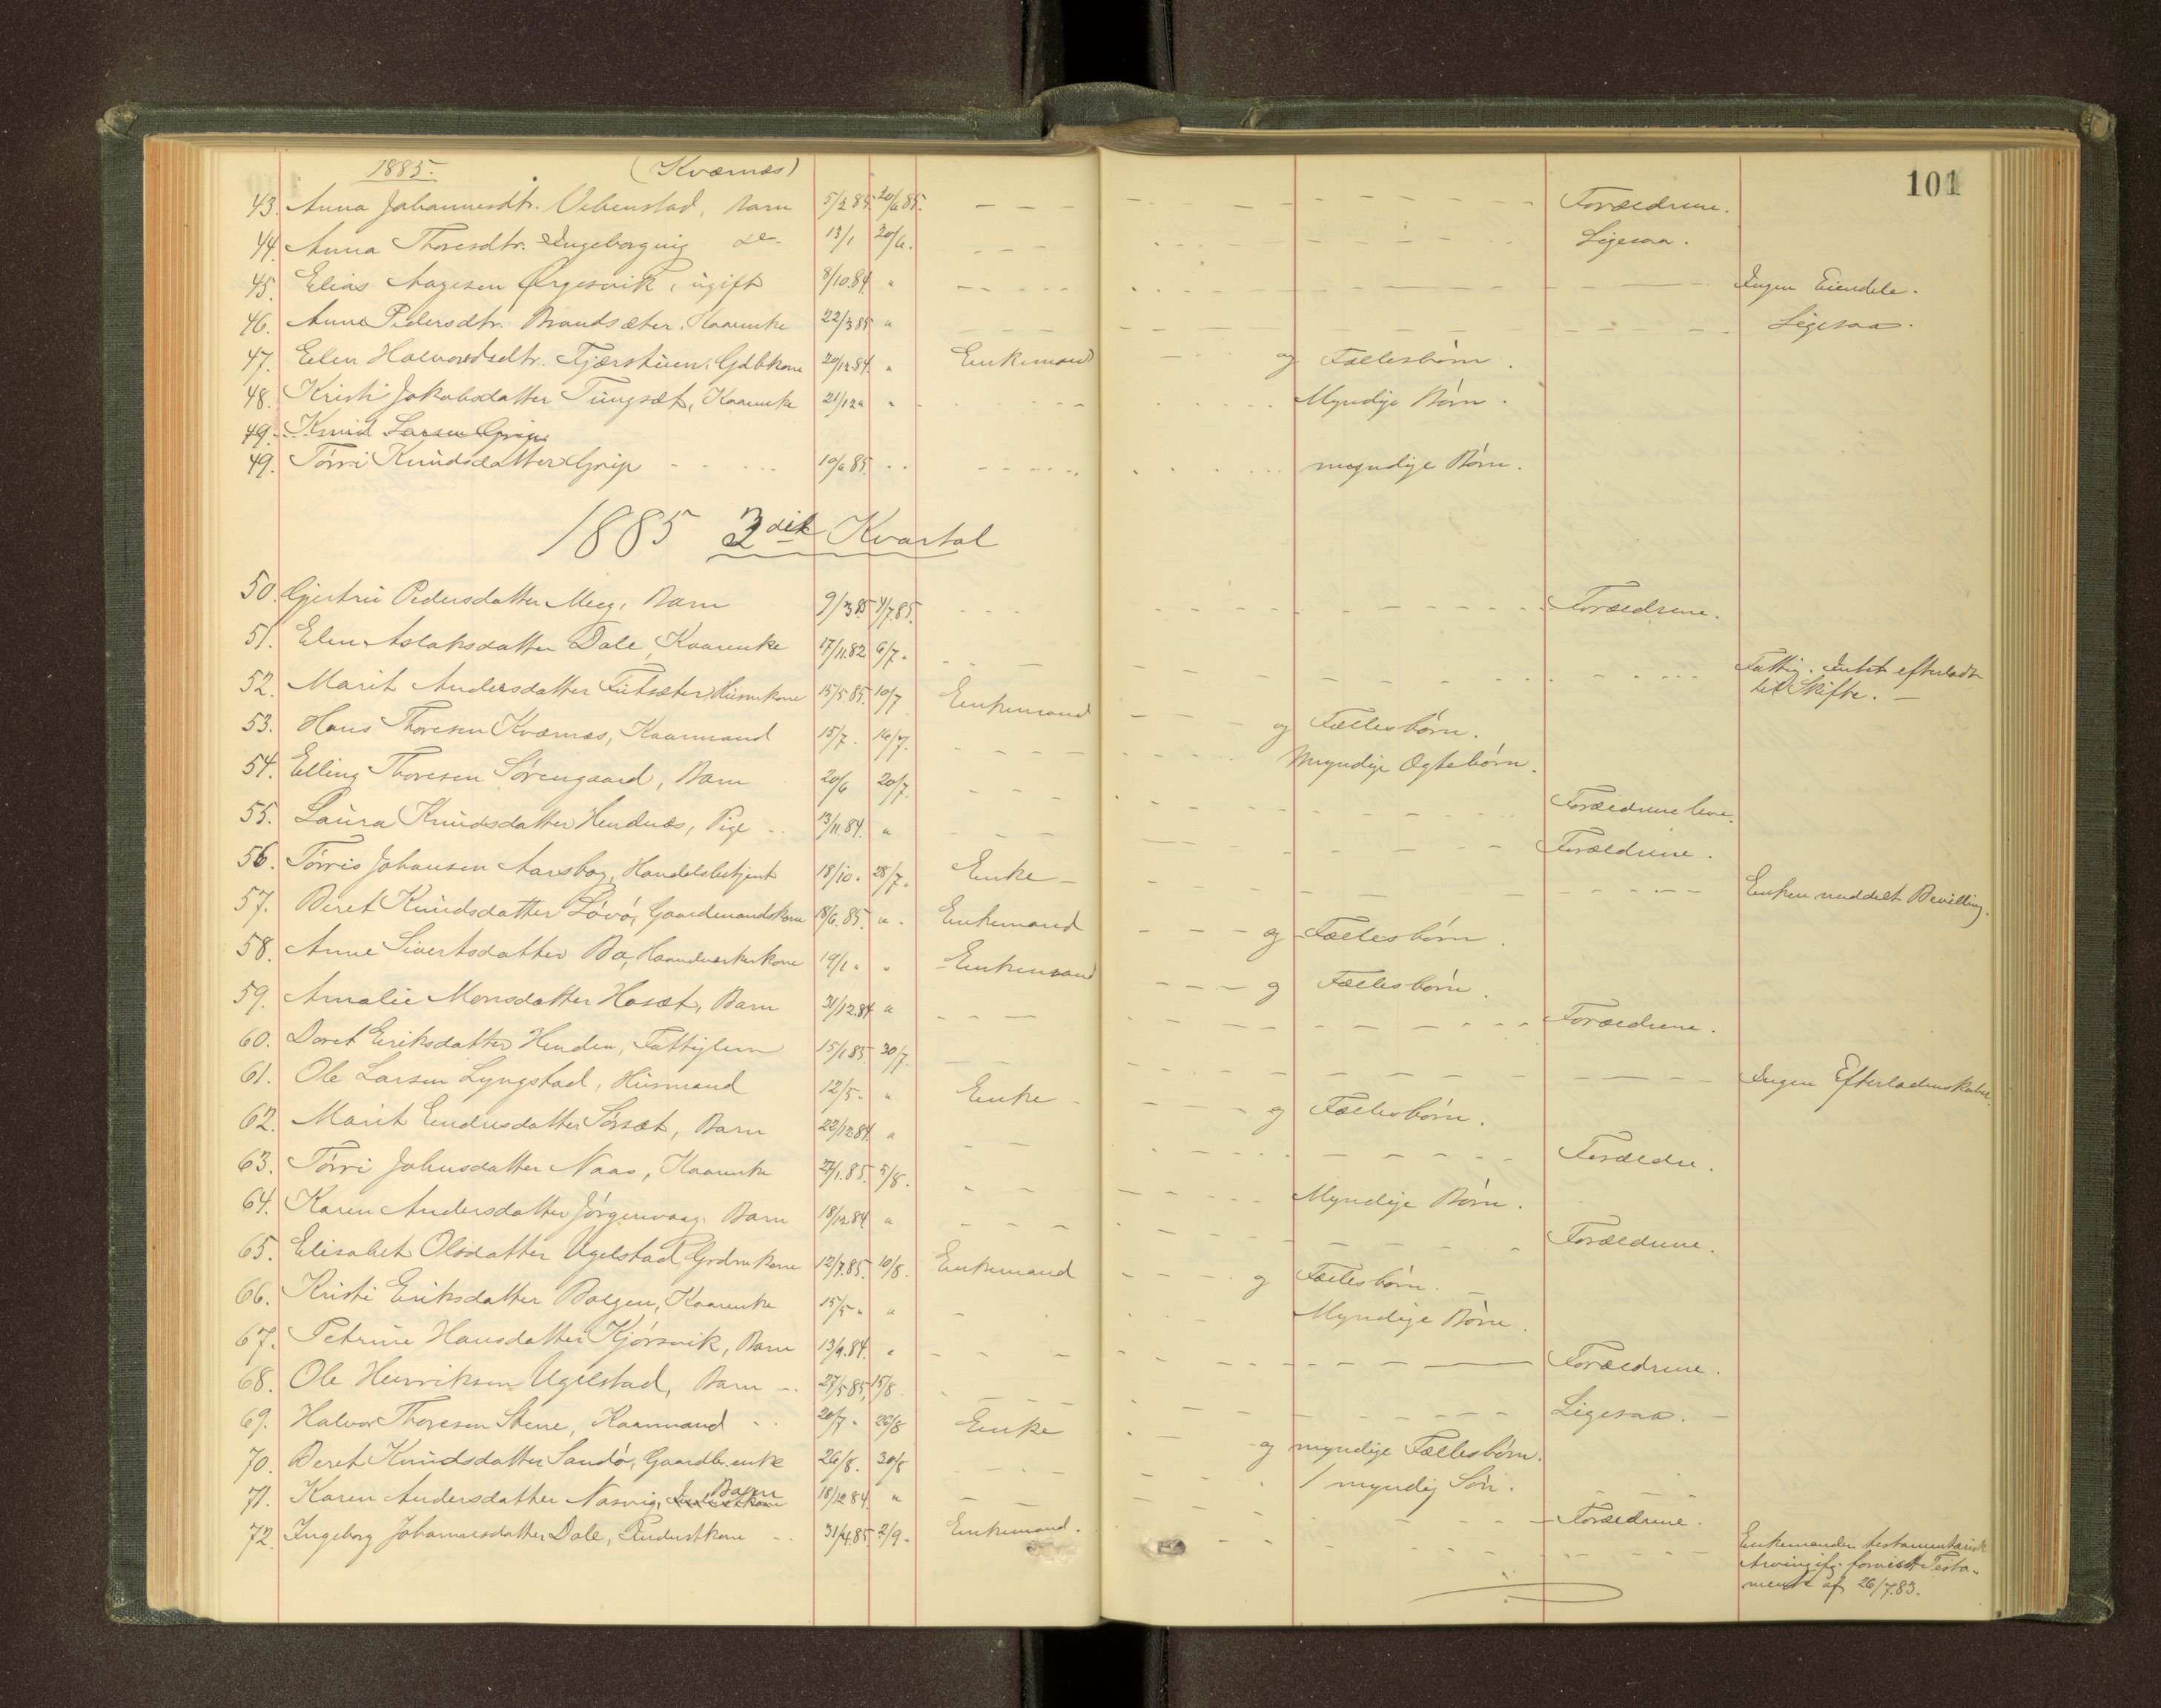 1885. (Kværnæs) 101
43. Anna Johannesdtr. Vebenstad, Barn 5/2 85. 20/6 85. Forældrene.
44. Anna Thoresdtr. Ingeborgvig do. 13/1 20/6. Ligesaa.
45. Elias Aagesen Ørgesvik, ugift 8/10.84 " Ingen Eiendele.
46. Anne Pedersdtr. Brandsæter, Kaarenke 22/3 85 " Ligesaa.
47. Elen Halvorsdtr. Fjærstuen, Gdbkone 20/12.84. " Enkemand og Fællesbörn.
48. Kristi Jakobsdatter Tungsæt, Kaarenke 21/12 " " Myndige Börn.
49. Knud Larsen Grip
49. Törri Knudsdatter Grip 10/6 85. myndige Börn.
1885 3die Kvartal
50. Gjertru Pedersdatter Meeg, Barn 9/3 85. 4/7.85. Forældrene.
51. Elen Aslaksdatter Dale, Kaarenke 17/11.82 6/7. Fattig. Intet efterladt
til Skifte.
52. Marit Andersdatter Futsæter, Husmkone 15/5.85. 10/7 Enkemand og Fællesbörn.
53. Hans Thoresen Kværnæs, Kaarmand 15/7. 16/7. Myndige Ægtebörn.
54. Elling Thoresen Sörengaard, Barn 20/6 20/7. Forældrene leve.
55. Laura Knudsdatter Hendnæs, Pige 13/11.84. " Forældrene.
56. Törris Johansen Aarsbog, Handelsbetjent 18/10. 28/7. Enke Enken meddelt Bevilling.
57. Beret Knudsdatter Lövö, Gaardmandskone 18/6.85. " Enkemand og Fællesbörn.
58. Anne Sivertsdatter Bø, Haandværkerkone 19/1 " " Enkemand og Fællesbörn.
59. Amalie Monsdatter Hasæt, Barn 31/12.84 " Forældrene.
60. Doret Eriksdatter Henden, Fattiglem 15/1 85. 30/7. Ingen Efterladenskaber.
61. Ole Larsen Lyngstad, Husmand 12/5. " Enke og Fællesbörn.
62. Marit Endresdatter Sörsæt, Barn 22/12 84. " Forældre.
63. Törri Johnsdatter Naas, Kaarenke 27/1.85. 5/8. Myndige Börn.
64. Karen Andersdatter Jörgenvaag, Barn 18/12.84 " Forældrene.
65. Elisabet Olsdatter Ugelstad, Grdmkone 12/7.85. 10/8. Enkemand og Fællesbörn.
66. Kristi Eriksdatter Bolgen, Kaarenke 15/5. " Myndige Börn.
67. Petrine Hansdatter Kjörsvik, Barn 13/9.84. " Forældrene.
68. Ole Henriksen Ugelstad, Barn 27/5 85. 15/8. Ligesaa.
69. Halvor Thoresen Stene, Kaarmand 20/7. 26/8 Enke og myndige Fællesbörn.
70. Beret Knudsdatter Sandö, Gaardb.enke 26/8. 30/8 1 myndig Sön.
71. Karen Andersdatter Nasvig, Barn 18/12 84 " Forældrene.
72. Ingeborg Johannesdatter Dale, Inderstkone 31/4.85 2/9. Enkemand. Enkemanden testamentarisk
Arving ifg. forevist Testa-
mente af 26/7.83.